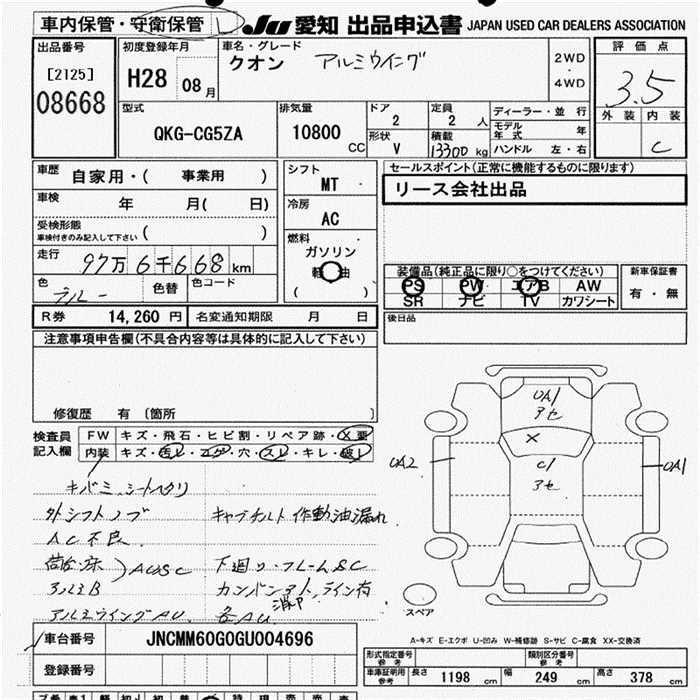 車内保管・守衛保管
JU 愛知 出品申込書 JAPAN USED CAR DEALERS ASSOCIATION
出品番号
[2125]
08668
初度登録年月
H28 08月
車名・グレード
クオン アルミウイング
2WD
・
4WD
評価点
3.5
外装 内装
C
型式
QKG-CG5ZA
排気量
10800
CC
ドア
2
定員
2 人
形状
V
積載
13300 kg
ディーラー・並行
モデル年式 年
ハンドル 左・右
車歴
自家用・( 事業用 )
車検
年 月( 日)
受検形態
車検付きのみ記入して下さい ( )
走行
97万6千668km
色
ブルー
色替
色コード
シフト
MT
冷房
AC
燃料
ガソリン
軽油
( )
セールスポイント(正常に機能するものに限ります)
リース会社出品
装備品(純正品に限り○をつけてください)
PS PW エアB AW
SR ナビ TV カワシート
新車保証書
有・無
後日品
R券 14,260 円 名変通知期限 月 日
注意事項申告欄(不具合内容等は具体的に記入して下さい)
修復歴 有〔箇所 〕
検査員
記入欄
FW キズ・飛石・ヒビ割・リペア跡・X要
内装 キズ・汚レ・コゲ・穴・スレ・キレ・破レ
キバミ、シートヘタリ
外シフトノブ キャブチルト作動油漏れ
AC不良
荷台・床 AUSC 下廻り・フレームSC
アルミB
アルミウイングAU 各AU
UA1
アセ
X
C1
アセ
UA2
UA1
スペア
A-キズ E-エクボ U-凹み W-補修跡 S-サビ C-腐食 XX-交換済
車台番号 JNCMM60G0GU004696
登録番号
形式指定番号
参考
類別区分番号
参考
車庫証明用
参考
長さ 1198 cm 幅 249 cm 高さ 378 cm